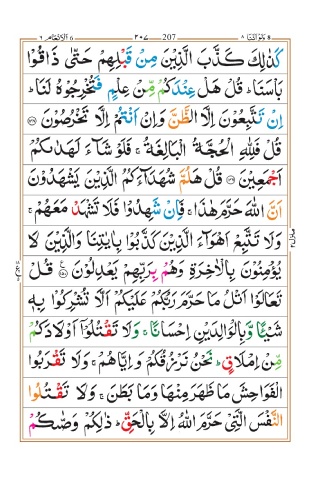 الانعام ٦ ٢٠٧ 207 ولواننا ٨
كَذٰلِكَ كَذَّبَ الَّذِيْنَ مِنْ قَبْلِهِمْ حَتّٰى ذَاقُوْا
بَاْسَنَا ؕ قُلْ هَلْ عِنْدَكُمْ مِّنْ عِلْمٍ فَتُخْرِجُوْهُ لَنَا ؕ
اِنْ تَتَّبِعُوْنَ اِلَّا الظَّنَّ وَاِنْ اَنْتُمْ اِلَّا تَخْرُصُوْنَ ۝
قُلْ فَلِلّٰهِ الْحُجَّةُ الْبَالِغَةُ ۚ فَلَوْ شَآءَ لَهَدٰىكُمْ
اَجْمَعِيْنَ ۝ قُلْ هَلُمَّ شُهَدَآءَكُمُ الَّذِيْنَ يَشْهَدُوْنَ
اَنَّ اللّٰهَ حَرَّمَ هٰذَا ۚ فَاِنْ شَهِدُوْا فَلَا تَشْهَدْ مَعَهُمْ ۚ
وَلَا تَتَّبِعْ اَهْوَآءَ الَّذِيْنَ كَذَّبُوْا بِاٰيٰتِنَا وَالَّذِيْنَ لَا
يُؤْمِنُوْنَ بِالْاٰخِرَةِ وَهُمْ بِرَبِّهِمْ يَعْدِلُوْنَ ۝ قُلْ
تَعَالَوْا اَتْلُ مَا حَرَّمَ رَبُّكُمْ عَلَيْكُمْ اَلَّا تُشْرِكُوْا بِهٖ
شَيْـًٔا وَّبِالْوَالِدَيْنِ اِحْسَانًا ۚ وَلَا تَقْتُلُوْٓا اَوْلَادَكُمْ
مِّنْ اِمْلَاقٍ ؕ نَحْنُ نَرْزُقُكُمْ وَاِيَّاهُمْ ۚ وَلَا تَقْرَبُوا
الْفَوَاحِشَ مَا ظَهَرَ مِنْهَا وَمَا بَطَنَ ۚ وَلَا تَقْتُلُوا
النَّفْسَ الَّتِيْ حَرَّمَ اللّٰهُ اِلَّا بِالْحَقِّ ؕ ذٰلِكُمْ وَصّٰىكُمْ